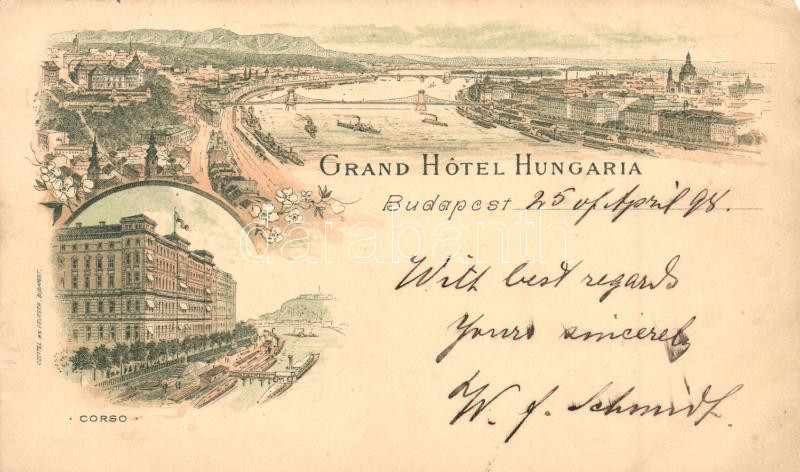 GRAND HÔTEL HUNGARIA
Budapest 25 of April 98.
With best regards
Yours sincerely
W. J. Schmidt.
· CORSO ·
darabanth